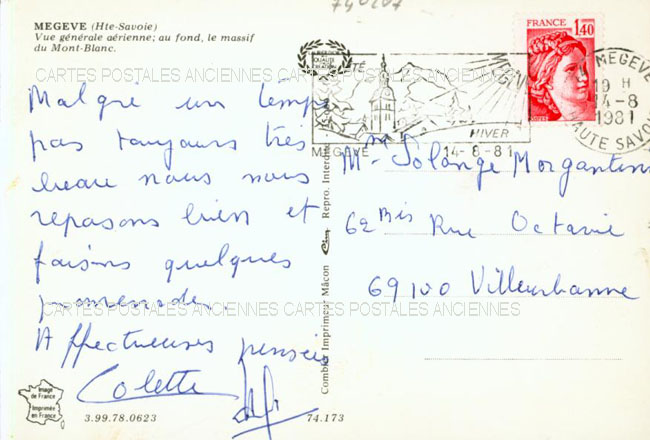 740207
MEGEVE (Hte-Savoie)
Vue générale aérienne; au fond, le massif
du Mont-Blanc.
CARTES POSTALES ANCIENNES CARTES POSTALES ANCIENNES
Malgré un temps
pas toujours très
beau nous nous
reposons bien et
faisons quelques
promenades.
Affectueuses pensées
Colette
Image
de France
Imprimée
en France
3.99.78.0623
74.173
Combier Imprimeur Mâcon
Repro. Interdite
ÉTÉ
HIVER
MEGEVE 14-8-81
FRANCE
1,40
MEGEVE
19 H
14-8
1981
HAUTE SAVOIE
Me Solange Morgantini
62 Bis Rue Octavie
69100 Villeurbanne
CARTES POSTALES ANCIENNES CARTES POSTALES ANCIENNES